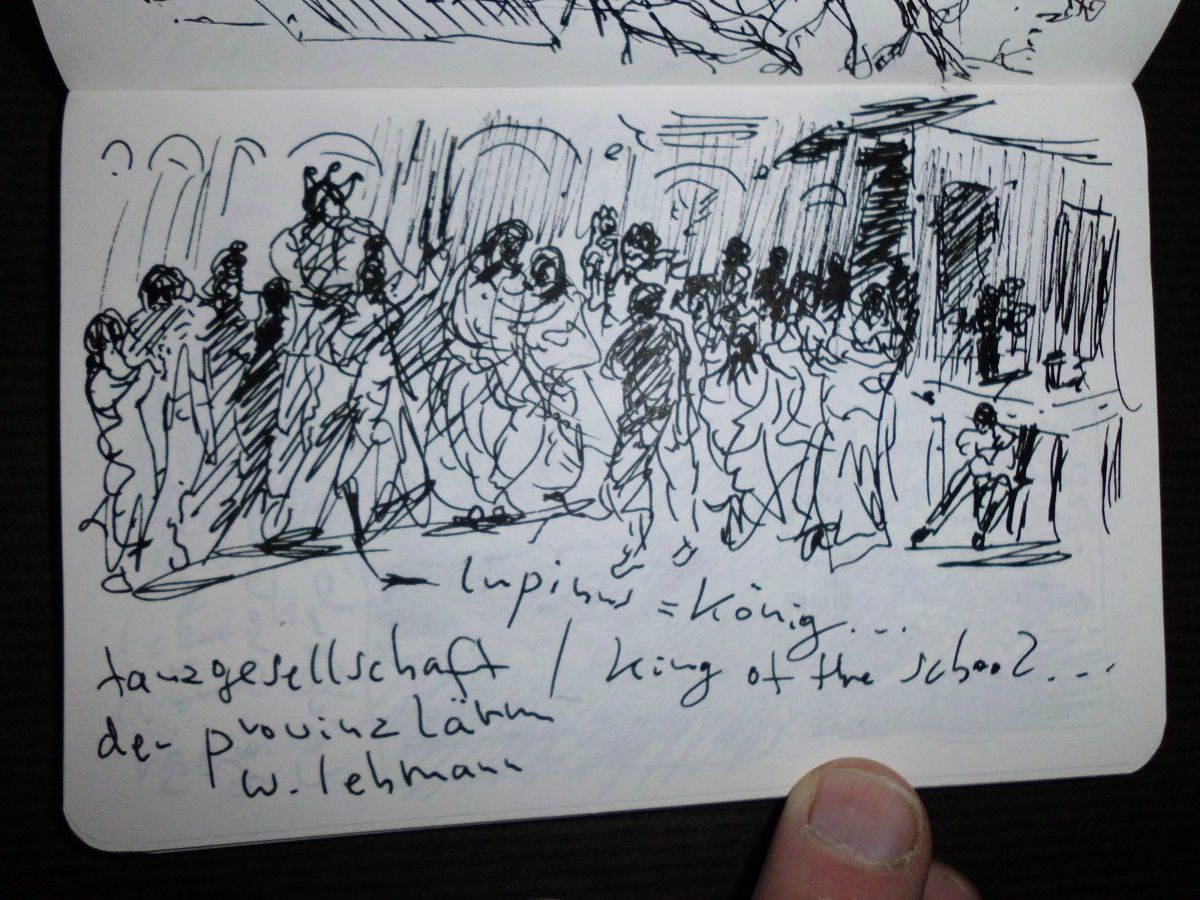 lupinus = König...
tanzgesellschaft / King of the school...
der provinzlärm
w. lehmann